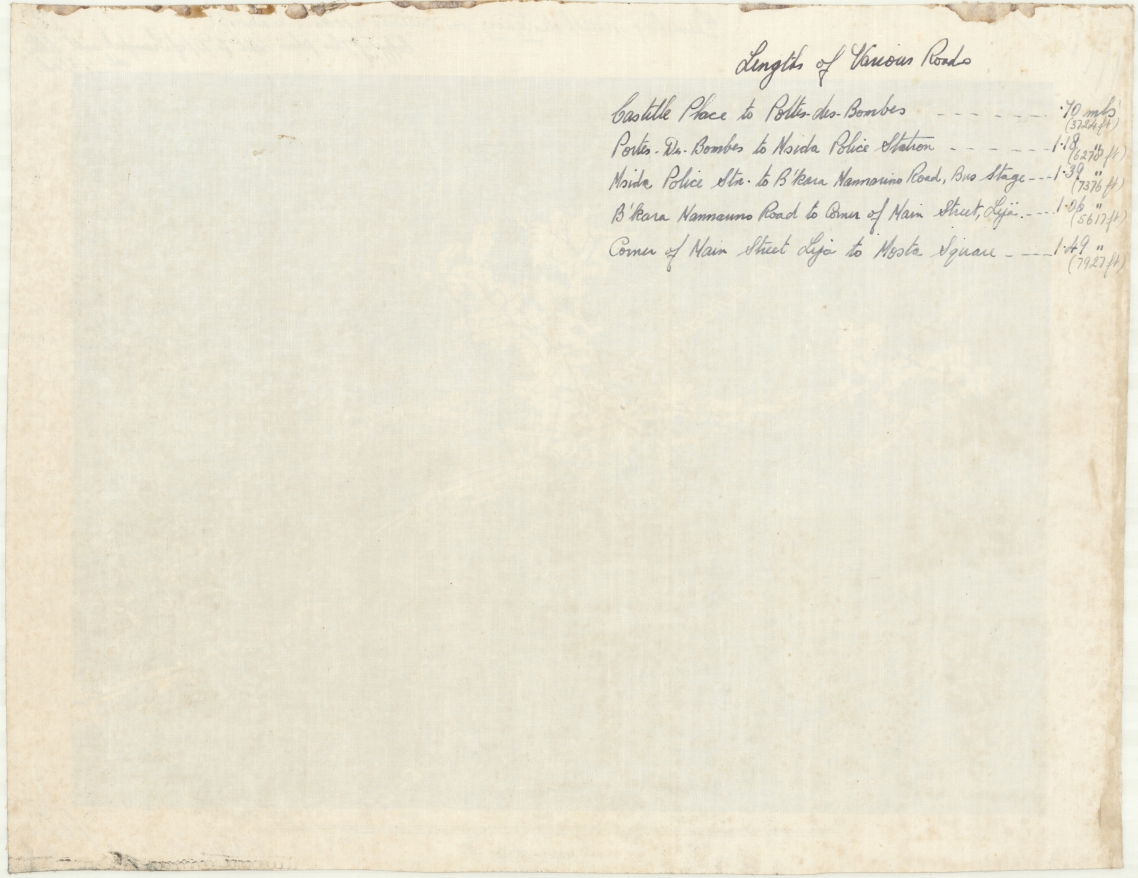 Lengths of Various Roads
Castille Place to Portes-des-Bombes - - - - - - .70 mls
(3724 ft)
Portes-Des-Bombes to Msida Police Station - - - - - 1.18 "
(6278 ft)
Msida Police Stn. to B'kara Mannarino Road, Bus Stage - - - 1.39 "
(7376 ft)
B'kara Mannarino Road to Corner of Main Street, Lija. - - - 1.06 "
(5617 ft)
Corner of Main Street Lija to Mosta Square - - - - 1.49 "
(7927 ft)